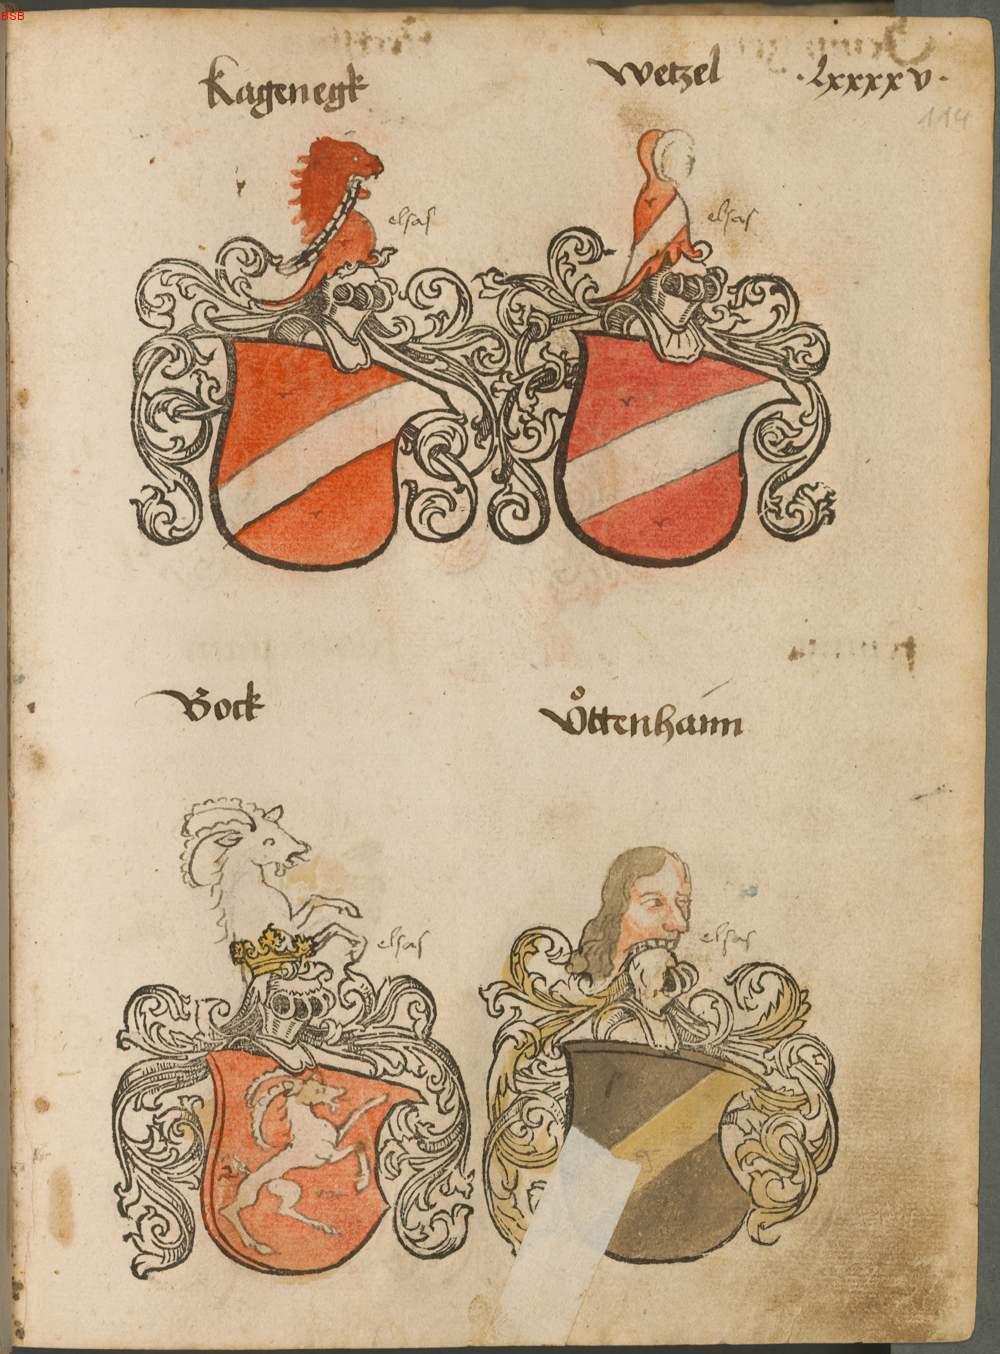 BSB
Kagenegk
Wetzel
·Lxxxxv·
114
elsas
elsas
Bock
Vͦttenhaim
elsas
elsas